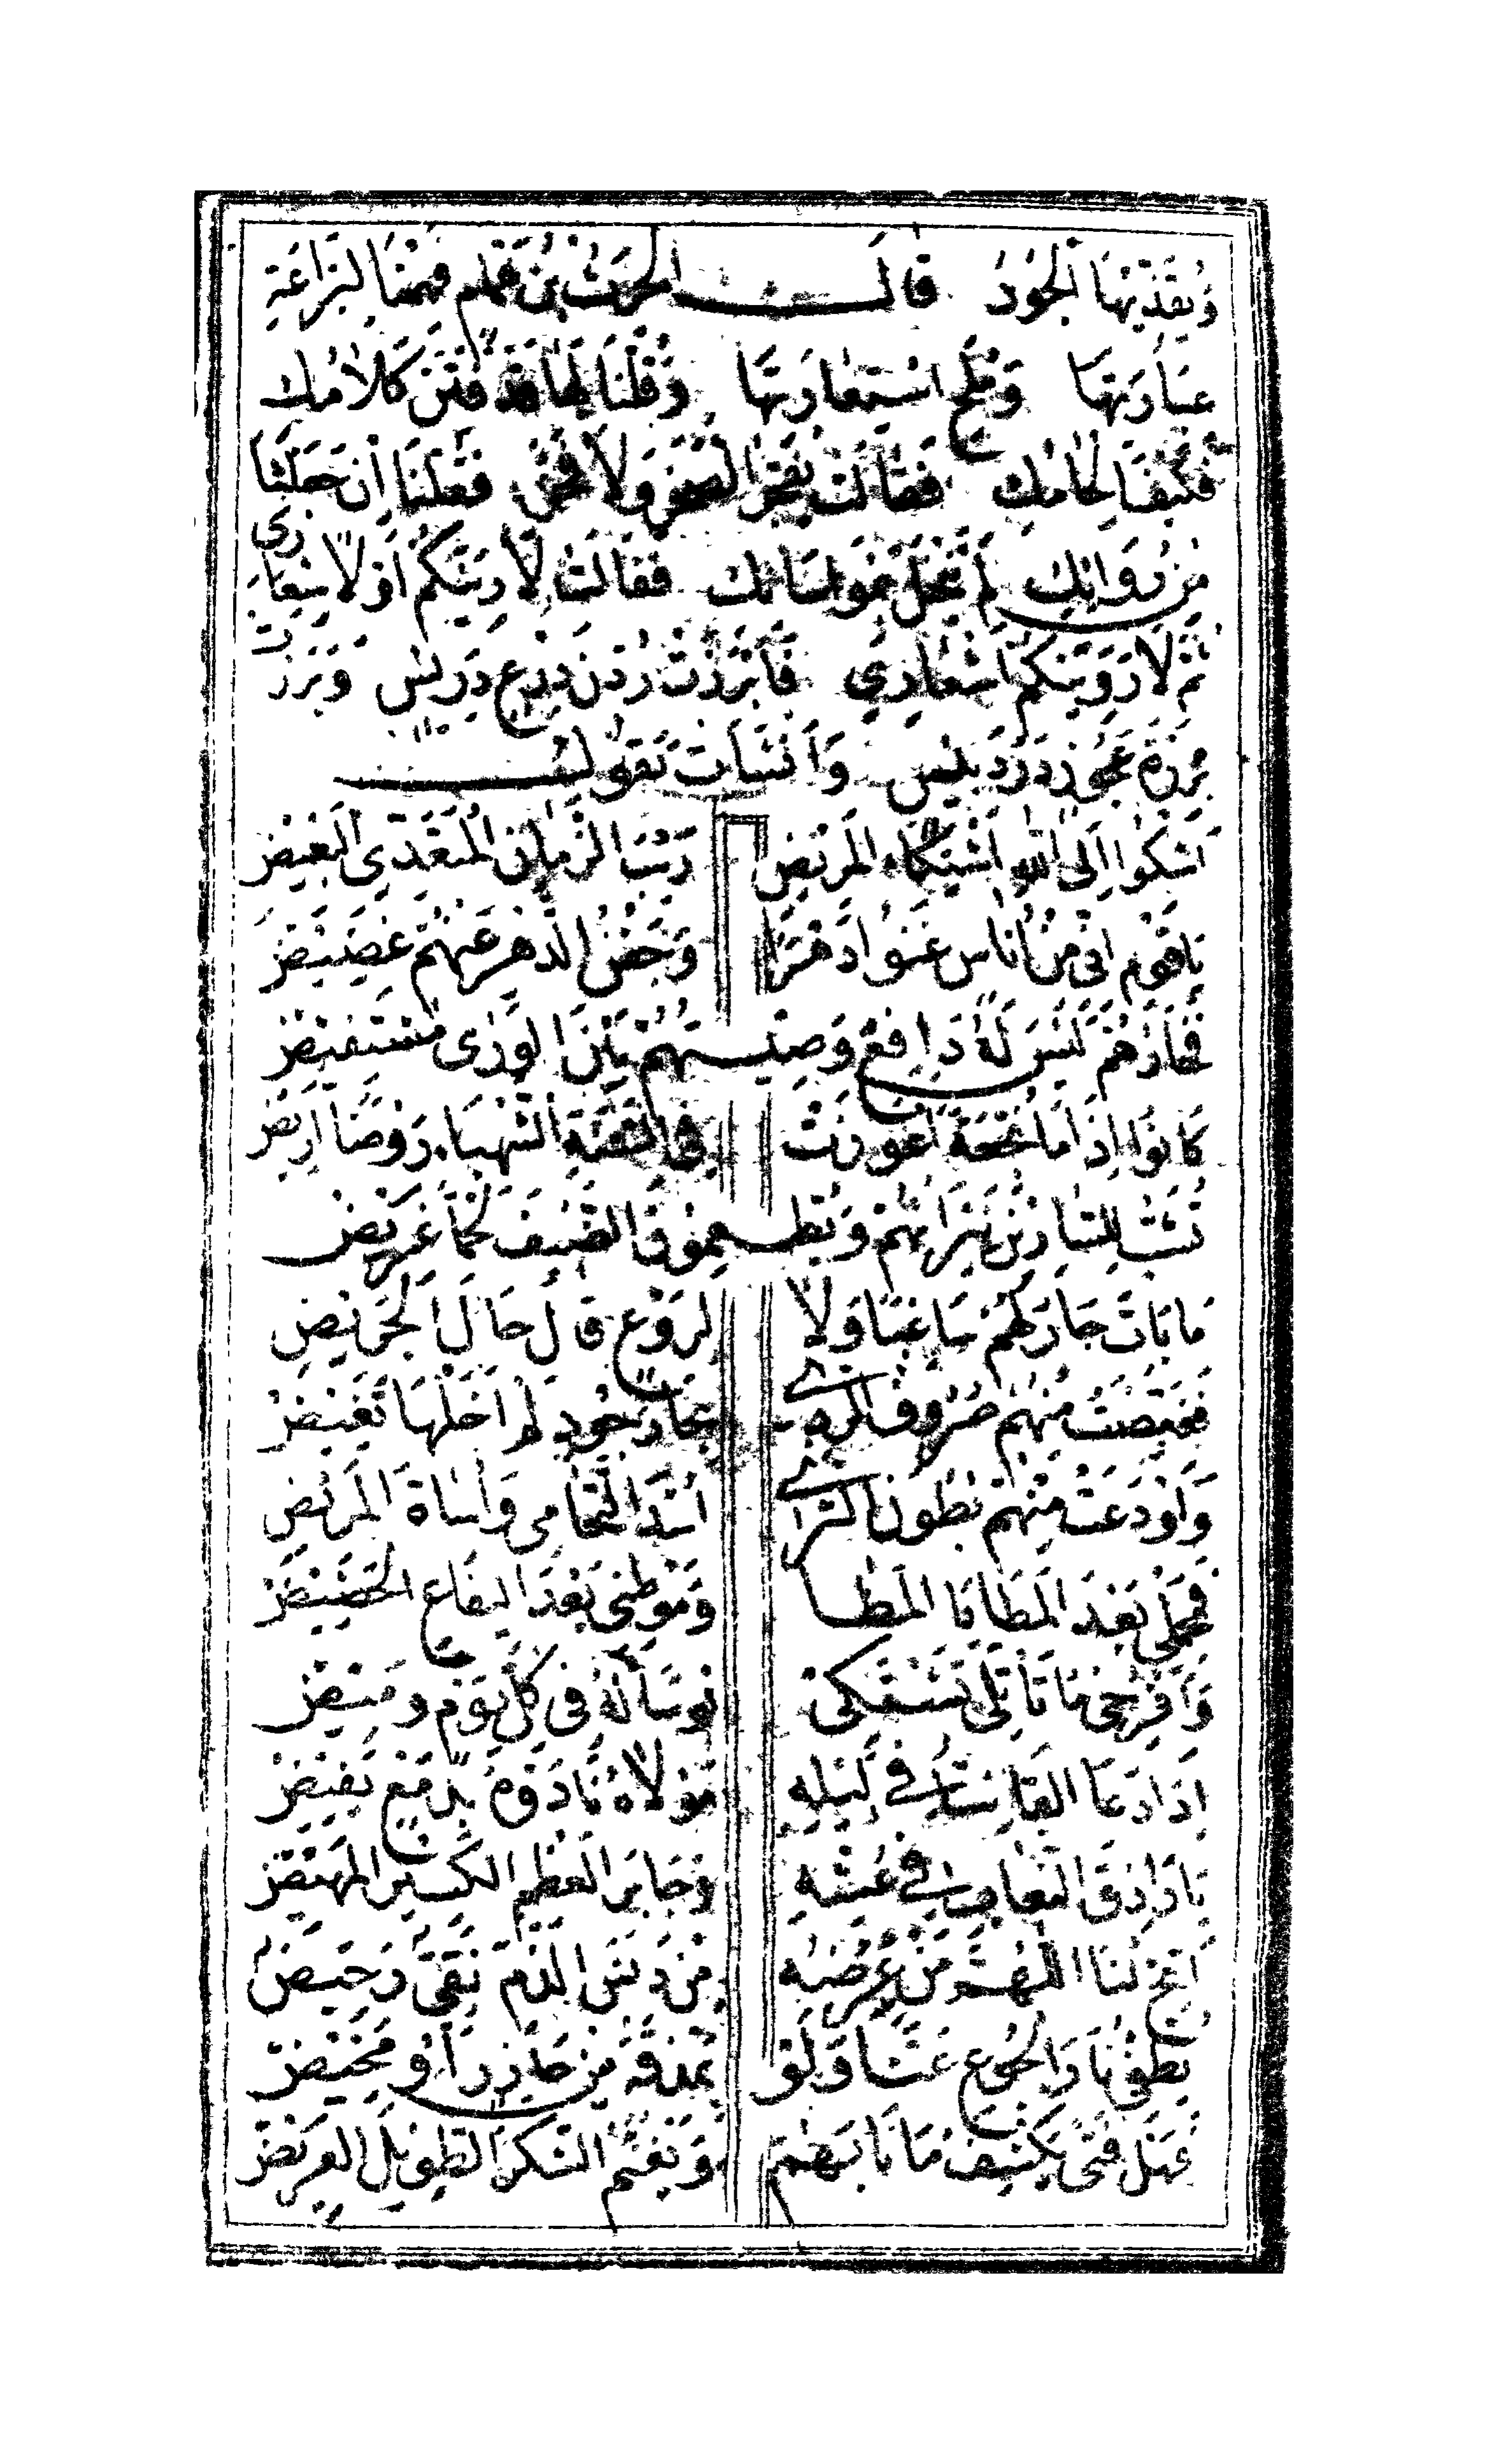 وَيُقَذِّيهَا الْجُودُ قَالَ الحَرثُ بْنُ هَمَّامٍ فَهِمْنَا لِبَرَاعَةِ
عِبَارَتِهَا وَمُلَحِ اسْتِعَارَتِهَا وَقُلْنَا لَهَا قَدْ فَتَنَ كَلَامُكِ
فَكَيْفَ إِلْحَامُكِ فَقَالَتْ يُفَجِّرُ الصَّخْرَ وَلَا فَخْرَ فَقُلْنَا إِنْ جَعَلْتِنَا
مِنْ رُوَاتِكِ لَمْ نَبْخَلْ بِمُوَاسَاتِكِ فَقَالَتْ لَأُرِيَنَّكُمْ أَوَّلًا شِعَارِي
ثُمَّ لَأُرَوِّيَنَّكُمْ أَشْعَارِي فَأَبْرَزَتْ رُدْنَ دِرْعٍ دَرِيسٍ وَبَرَزَتْ
بِرْزَةَ عَجُوزٍ دَرْدَبِيسٍ وَأَنْشَأَتْ تَقُولُ
أَشْكُوا إِلَى اللهِ اشْتِكَاءَ الْمَرِيضِ رَيْبَ الزَّمَانِ الْمُتَعَدِّي الْبَغِيضْ
يَا قَوْمِ إِنِّي مِنْ أُنَاسٍ غَنُوا دَهْرًا وَجَفْنُ الدَّهْرِ عَنْهُمْ غَضِيضْ
فَخَارُهُمْ لَيْسَ لَهُ دَافِعٌ وَصِيتُهُمْ بَيْنَ الْوَرَى مُسْتَفِيضْ
كَانُوا إِذَا مَا نُجْعَةٌ أَعْوَزَتْ فِي السَّنَةِ الشَّهْبَاءِ رَوْضًا أَرِيضْ
تُشَبُّ لِلسَّارِينَ نِيرَانُهُمْ وَيُطْعِمُونَ الضَّيْفَ لَحْمًا غَرِيضْ
مَا بَاتَ جَارٌ لَهُمْ سَاغِبًا وَلَا لِرَوْعٍ قَالَ حَالَ الْجَرِيضِ
فَغَيَّضَتْ مِنْهُمْ صُرُوفُ الرَّدَى بِحَارَ جُودٍ لَمْ أَخَلْهَا تَغِيضْ
وَأُودِعَتْ مِنْهُمْ بُطُونُ الثَّرَى أُسْدَ التَّحَامِي وَأُسَاةَ الْمَرِيضِ
فَمَحْمَلِي بَعْدَ الْمَطَايَا الْمَطَا وَمَوْطِنِي بَعْدَ الْيَفَاعِ الْحَضِيضْ
وَأَفْرُخِي مَا تَأْتَلِي تَشْتَكِي بُؤْسًا لَهُ فِي كُلِّ يَوْمٍ وَمِيضْ
إِذَا دَعَا الْقَانِتُ فِي لَيْلِهِ مَوْلَاهُ نَادَوْهُ بِدَمْعٍ يَفِيضْ
يَا رَازِقَ النَّعَّابِ فِي عُشِّهِ وَجَابِرَ الْعَظْمِ الْكَسِيرِ الْمَهِيضْ
أَتِحْ لَنَا اللَّهُمَّ مَنْ عِرْضُهُ مِنْ دَنَسِ الذَّمِّ نَقِيٌّ رَحِيضْ
يُطْفِي نَارَ الْجُوعِ عَنَّا وَلَوْ بِمَذْقَةٍ مِنْ حَازِرٍ أَوْ مَخِيضْ
فَهَلْ فَتًى يَكْشِفُ مَا نَابَهُمْ وَيَغْنَمُ الشُّكْرَ الطَّوِيلَ الْعَرِيضْ